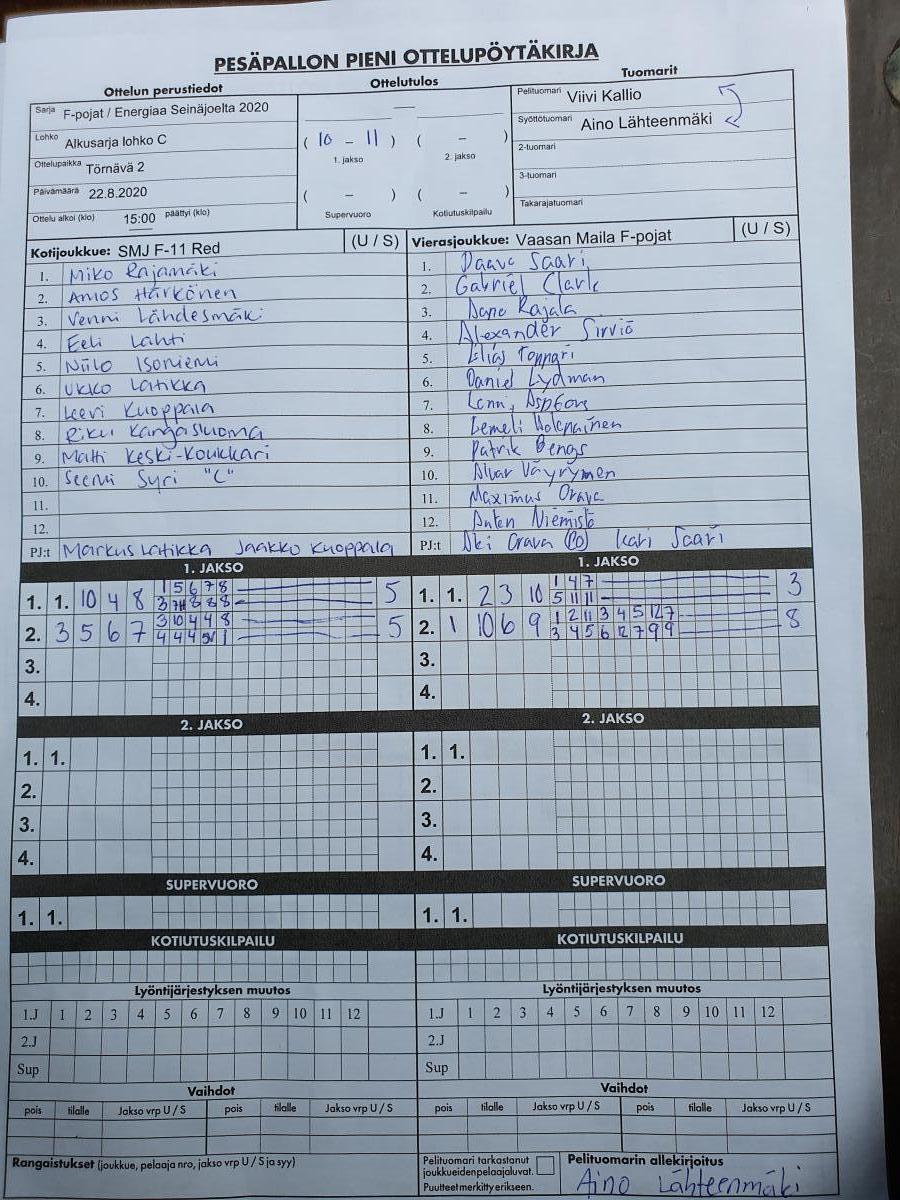 PESÄPALLON PIENI OTTELUPÖYTÄKIRJA
Ottelun perustiedot
Ottelutulos
Tuomarit
Sarja F-pojat / Energiaa Seinäjoelta 2020
Lohko Alkusarja lohko C
Ottelupaikka Törnävä 2
Päivämäärä 22.8.2020
Ottelu alkoi (klo) 15:00 päättyi (klo)
( 10 - 11 ) ( - )
1. jakso 2. jakso
( - ) ( - )
Supervuoro Kotiutuskilpailu
Pelituomari Viivi Kallio
Syöttötuomari Aino Lähteenmäki
2-tuomari
3-tuomari
Takarajatuomari
Kotijoukkue: SMJ F-11 Red (U / S)
1. Miko Rajamäki
2. Amos Härkönen
3. Venni Lähdesmäki
4. Eeli Lahti
5. Niilo Isoniemi
6. Ukko Latikka
7. Leevi Kuoppala
8. Riku Kangasluoma
9. Matti Keski-Koukkari
10. Seemi Syri "C"
11.
12.
PJ:t Markus Latikka Jaakko Kuoppala
Vierasjoukkue: Vaasan Maila F-pojat (U / S)
1. Daavo Saari
2. Gabriel Clark
3. Rajala
4. Alexander Sirviö
5. Elias Toppari
6. Daniel Lydman
7. Lenni
8. Lemeli
9. Patrik Bengs
10. Alvar Väyrynen
11. Maximus Orava
12. Anton Niemistö
PJ:t Aki Orava (PO) Kari Saari
1. JAKSO
1. 1. 10 4 8 1 5 6 7 8 5
8 8 8
2. 3 5 6 7 3 10 4 4 8 5
4 4 4 1
3.
4.
1. JAKSO
1. 1. 2 3 10 1 4 7 3
5 11 11
2. 1 10 6 9 1 2 11 3 4 5 12 7 8
3 4 5 6 12 7 9 9
3.
4.
2. JAKSO
1. 1.
2.
3.
4.
2. JAKSO
1. 1.
2.
3.
4.
SUPERVUORO
1. 1.
SUPERVUORO
1. 1.
KOTIUTUSKILPAILU
KOTIUTUSKILPAILU
Lyöntijärjestyksen muutos
1.J 1 2 3 4 5 6 7 8 9 10 11 12
2.J
Sup
Lyöntijärjestyksen muutos
1.J 1 2 3 4 5 6 7 8 9 10 11 12
2.J
Sup
Vaihdot
pois tilalle Jakso vrp U / S pois tilalle Jakso vrp U / S
Vaihdot
pois tilalle Jakso vrp U / S pois tilalle Jakso vrp U / S
Rangaistukset (joukkue, pelaaja nro, jakso vrp U / S ja syy)
Pelituomari tarkastanut
joukkueidenpelaajaluvat.
Puutteet merkitty erikseen.
Pelituomarin allekirjoitus
Aino Lähteenmäki